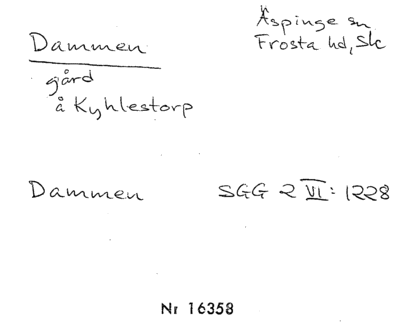 Dammen
Äspinge sn
Frosta hd, Sk
gård
å Kyhlestorp
Dammen SGG 2 VI: 1228
Nr 16358